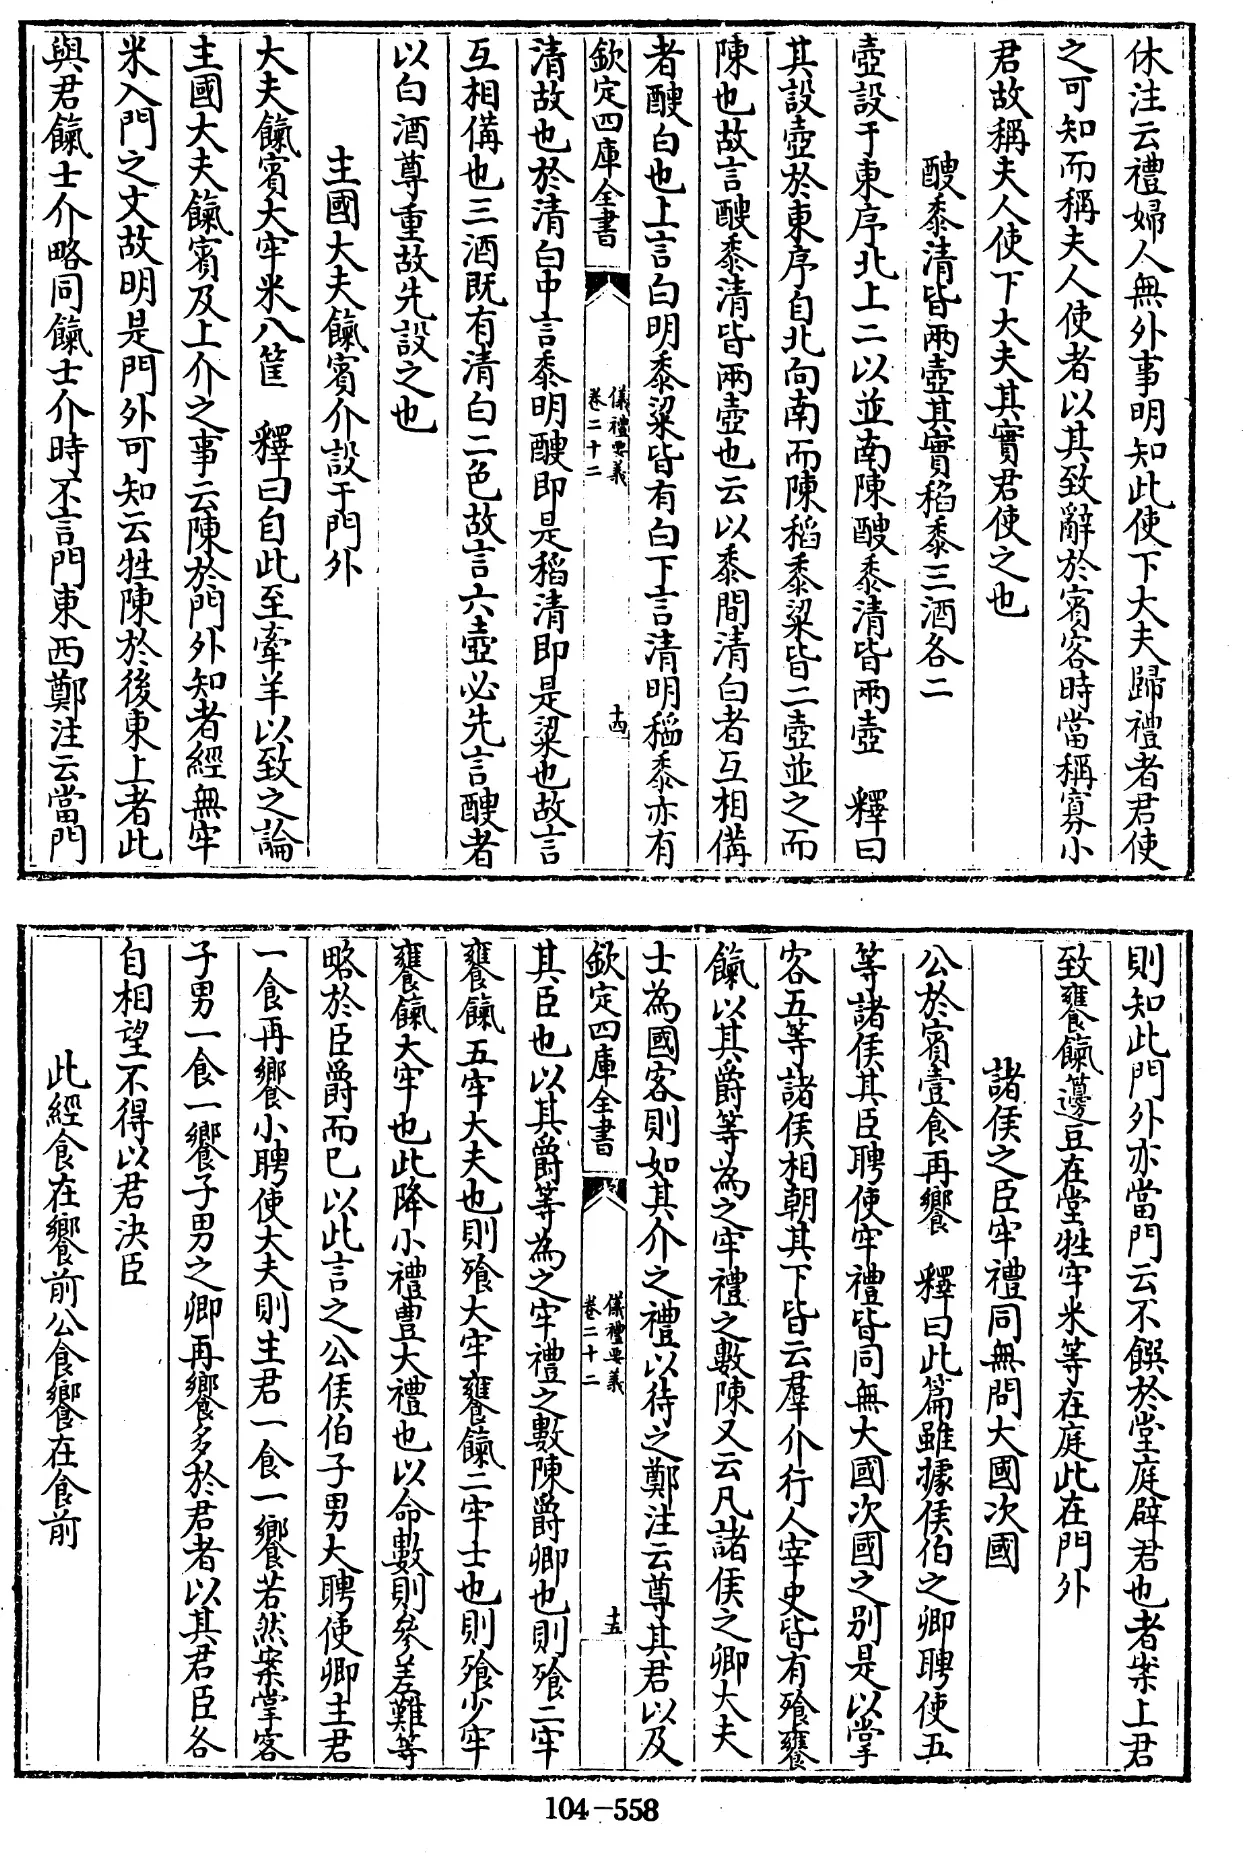 休注云禮婦人無外事明知此使下大夫歸禮者君使
之可知而稱夫人使者以其致辭於賓客時當稱寡小
君故稱夫人使下大夫其實君使之也
醙黍清皆兩壺其實稻黍三酒各二
壺設于東序北上二以並南陳醙黍清皆兩壺　釋曰
其設壺於東序自北向南而陳稻黍粱皆二壺並之而
陳也故言醙黍清皆兩壺也云以黍間清白者互相備
者醙白也上言白明黍粱皆有白下言清明稻黍亦有
欽定四庫全書
儀禮要義
卷二十二
十四
清故也於清白中言黍明醙即是稻清即是粱也故言
互相備也三酒既有清白二色故言六壺必先言醙者
以白酒尊重故先設之也
主國大夫餼賓介設于門外
大夫餼賓大牢米八筐　釋曰自此至牽羊以致之論
主國大夫餼賓及上介之事云陳於門外知者經無牢
米入門之文故明是門外可知云牲陳於後東上者此
與君餼士介略同餼士介時不言門東西鄭注云當門
則知此門外亦當門云不饌於堂庭辟君也者案上君
致饔餼籩豆在堂牲牢米等在庭此在門外
諸侯之臣牢禮同無問大國次國
公於賓壹食再饗　釋曰此篇雖據侯伯之卿聘使五
等諸侯其臣聘使牢禮皆同無大國次國之別是以掌
客五等諸侯相朝其下皆云羣介行人宰史皆有飱饔
餼以其爵等為之牢禮之數陳又云凡諸侯之卿大夫
士為國客則如其介之禮以待之鄭注云尊其君以及
欽定四庫全書
儀禮要義
卷二十二
十五
其臣也以其爵等為之牢禮之數陳爵卿也則飱二牢
饔餼五牢大夫也則飱大牢饔餼二牢士也則飱少牢
饔餼大牢也此降小禮豊大禮也以命數則參差難等
略於臣爵而已以此言之公侯伯子男大聘使卿主君
一食再饗小聘使大夫則主君一食一饗若然案掌客
子男一食一饗子男之卿再饗多於君者以其君臣各
自相望不得以君決臣
此經食在饗前公食饗在食前
104-558